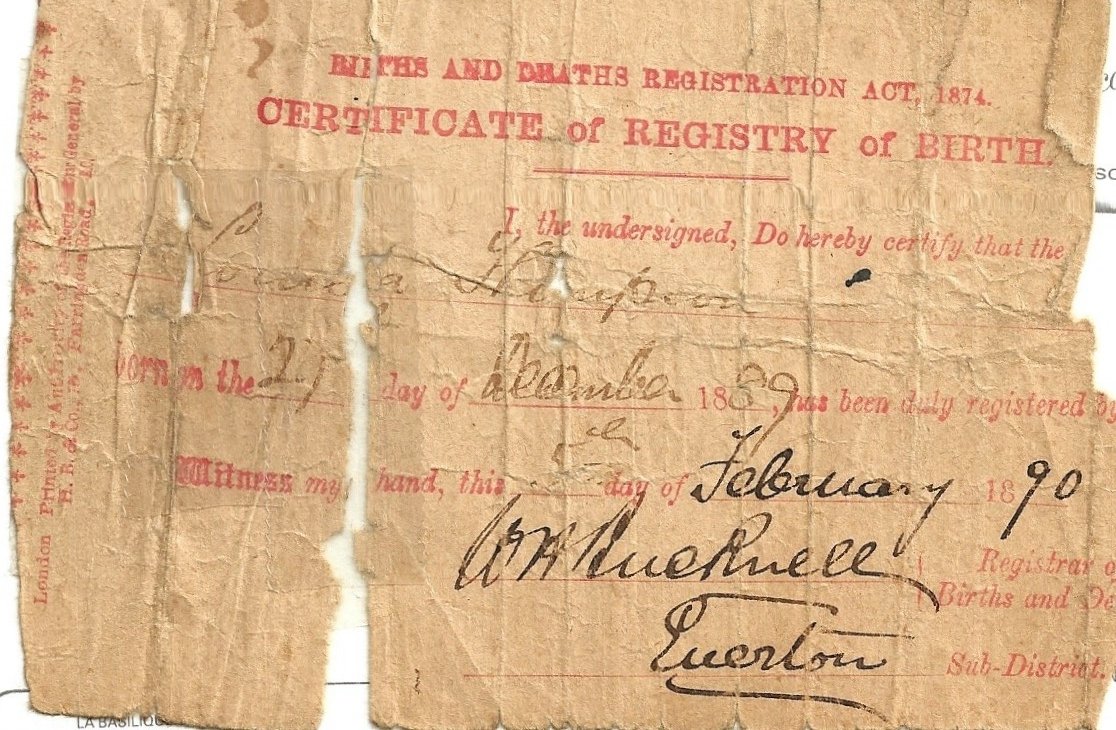 BIRTHS AND DEATHS REGISTRATION ACT, 1874.
CERTIFICATE of REGISTRY of BIRTH.
I, the undersigned, Do hereby certify that the
born on the 27 day of December 1889, has been duly registered by
Witness my hand, this day of February 1890
Registrar o
Births and De
Everton Sub-District.
London Printed Authority of the General by
H. B. & Co., Farringdon Road,
LA BASILIQ